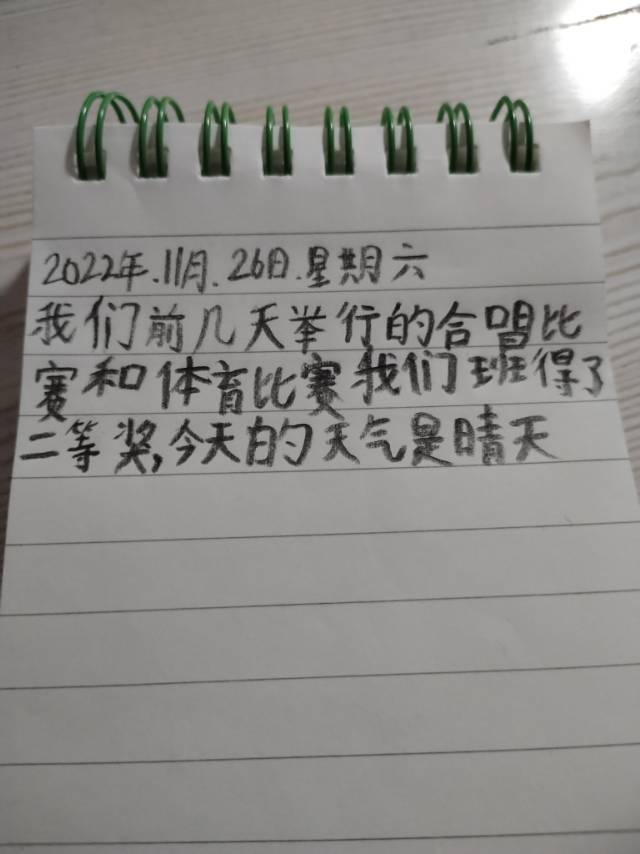 2022年.11月.26日.星期六
我们前几天举行的合唱比
赛和体育比赛我们班得了
二等奖,今天的天气是晴天